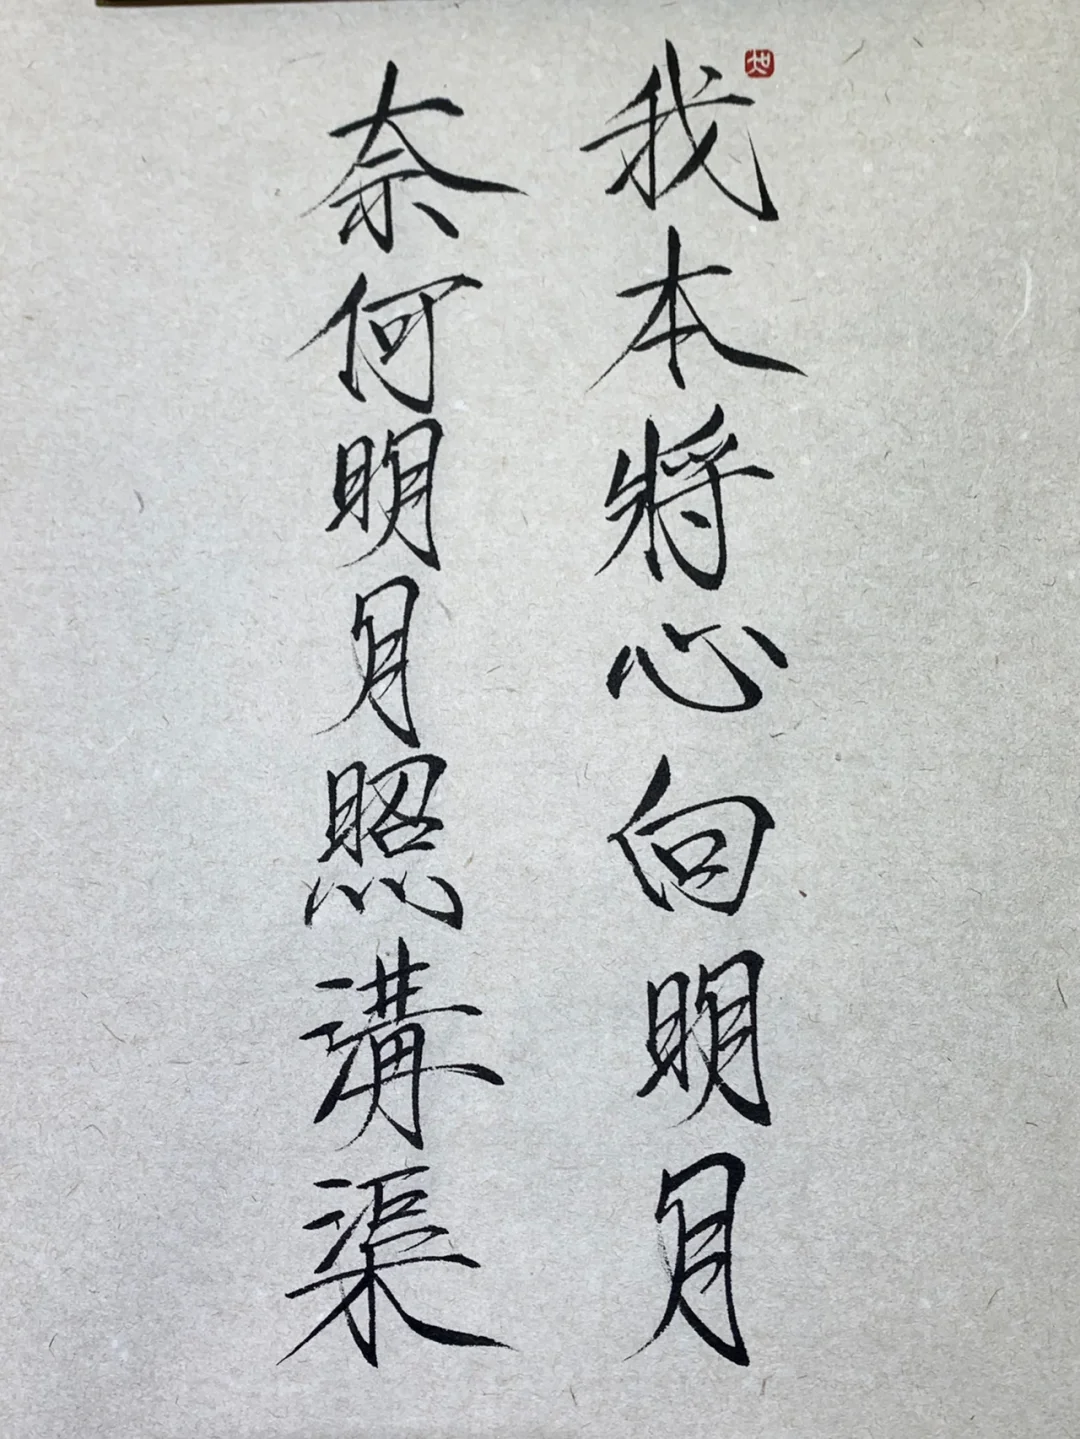 我本將心向明月
奈何明月照溝渠